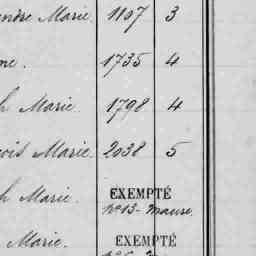 ndre Marie. 1107 3
ne. 1735 4
h Marie. 1798 4
çois Marie. 2038 5
h Marie. EXEMPTÉ
Nº 13 - Maure.
Marie. EXEMPTÉ